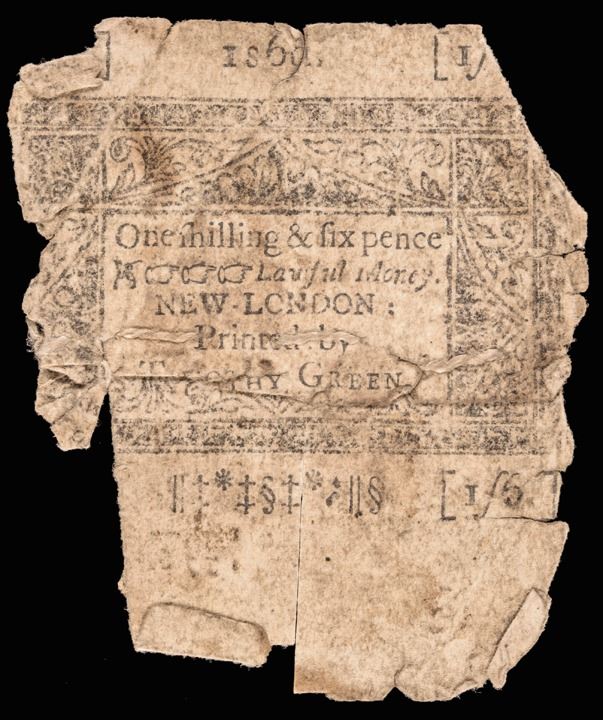 ] 18 6d. [1/
One ſhilling & ſix pence
☞☞☞ Lawful Money.
NEW-LONDON:
Printed by
TIMOTHY GREEN
¶‡*‡§‡*‡¶§ [1/6]